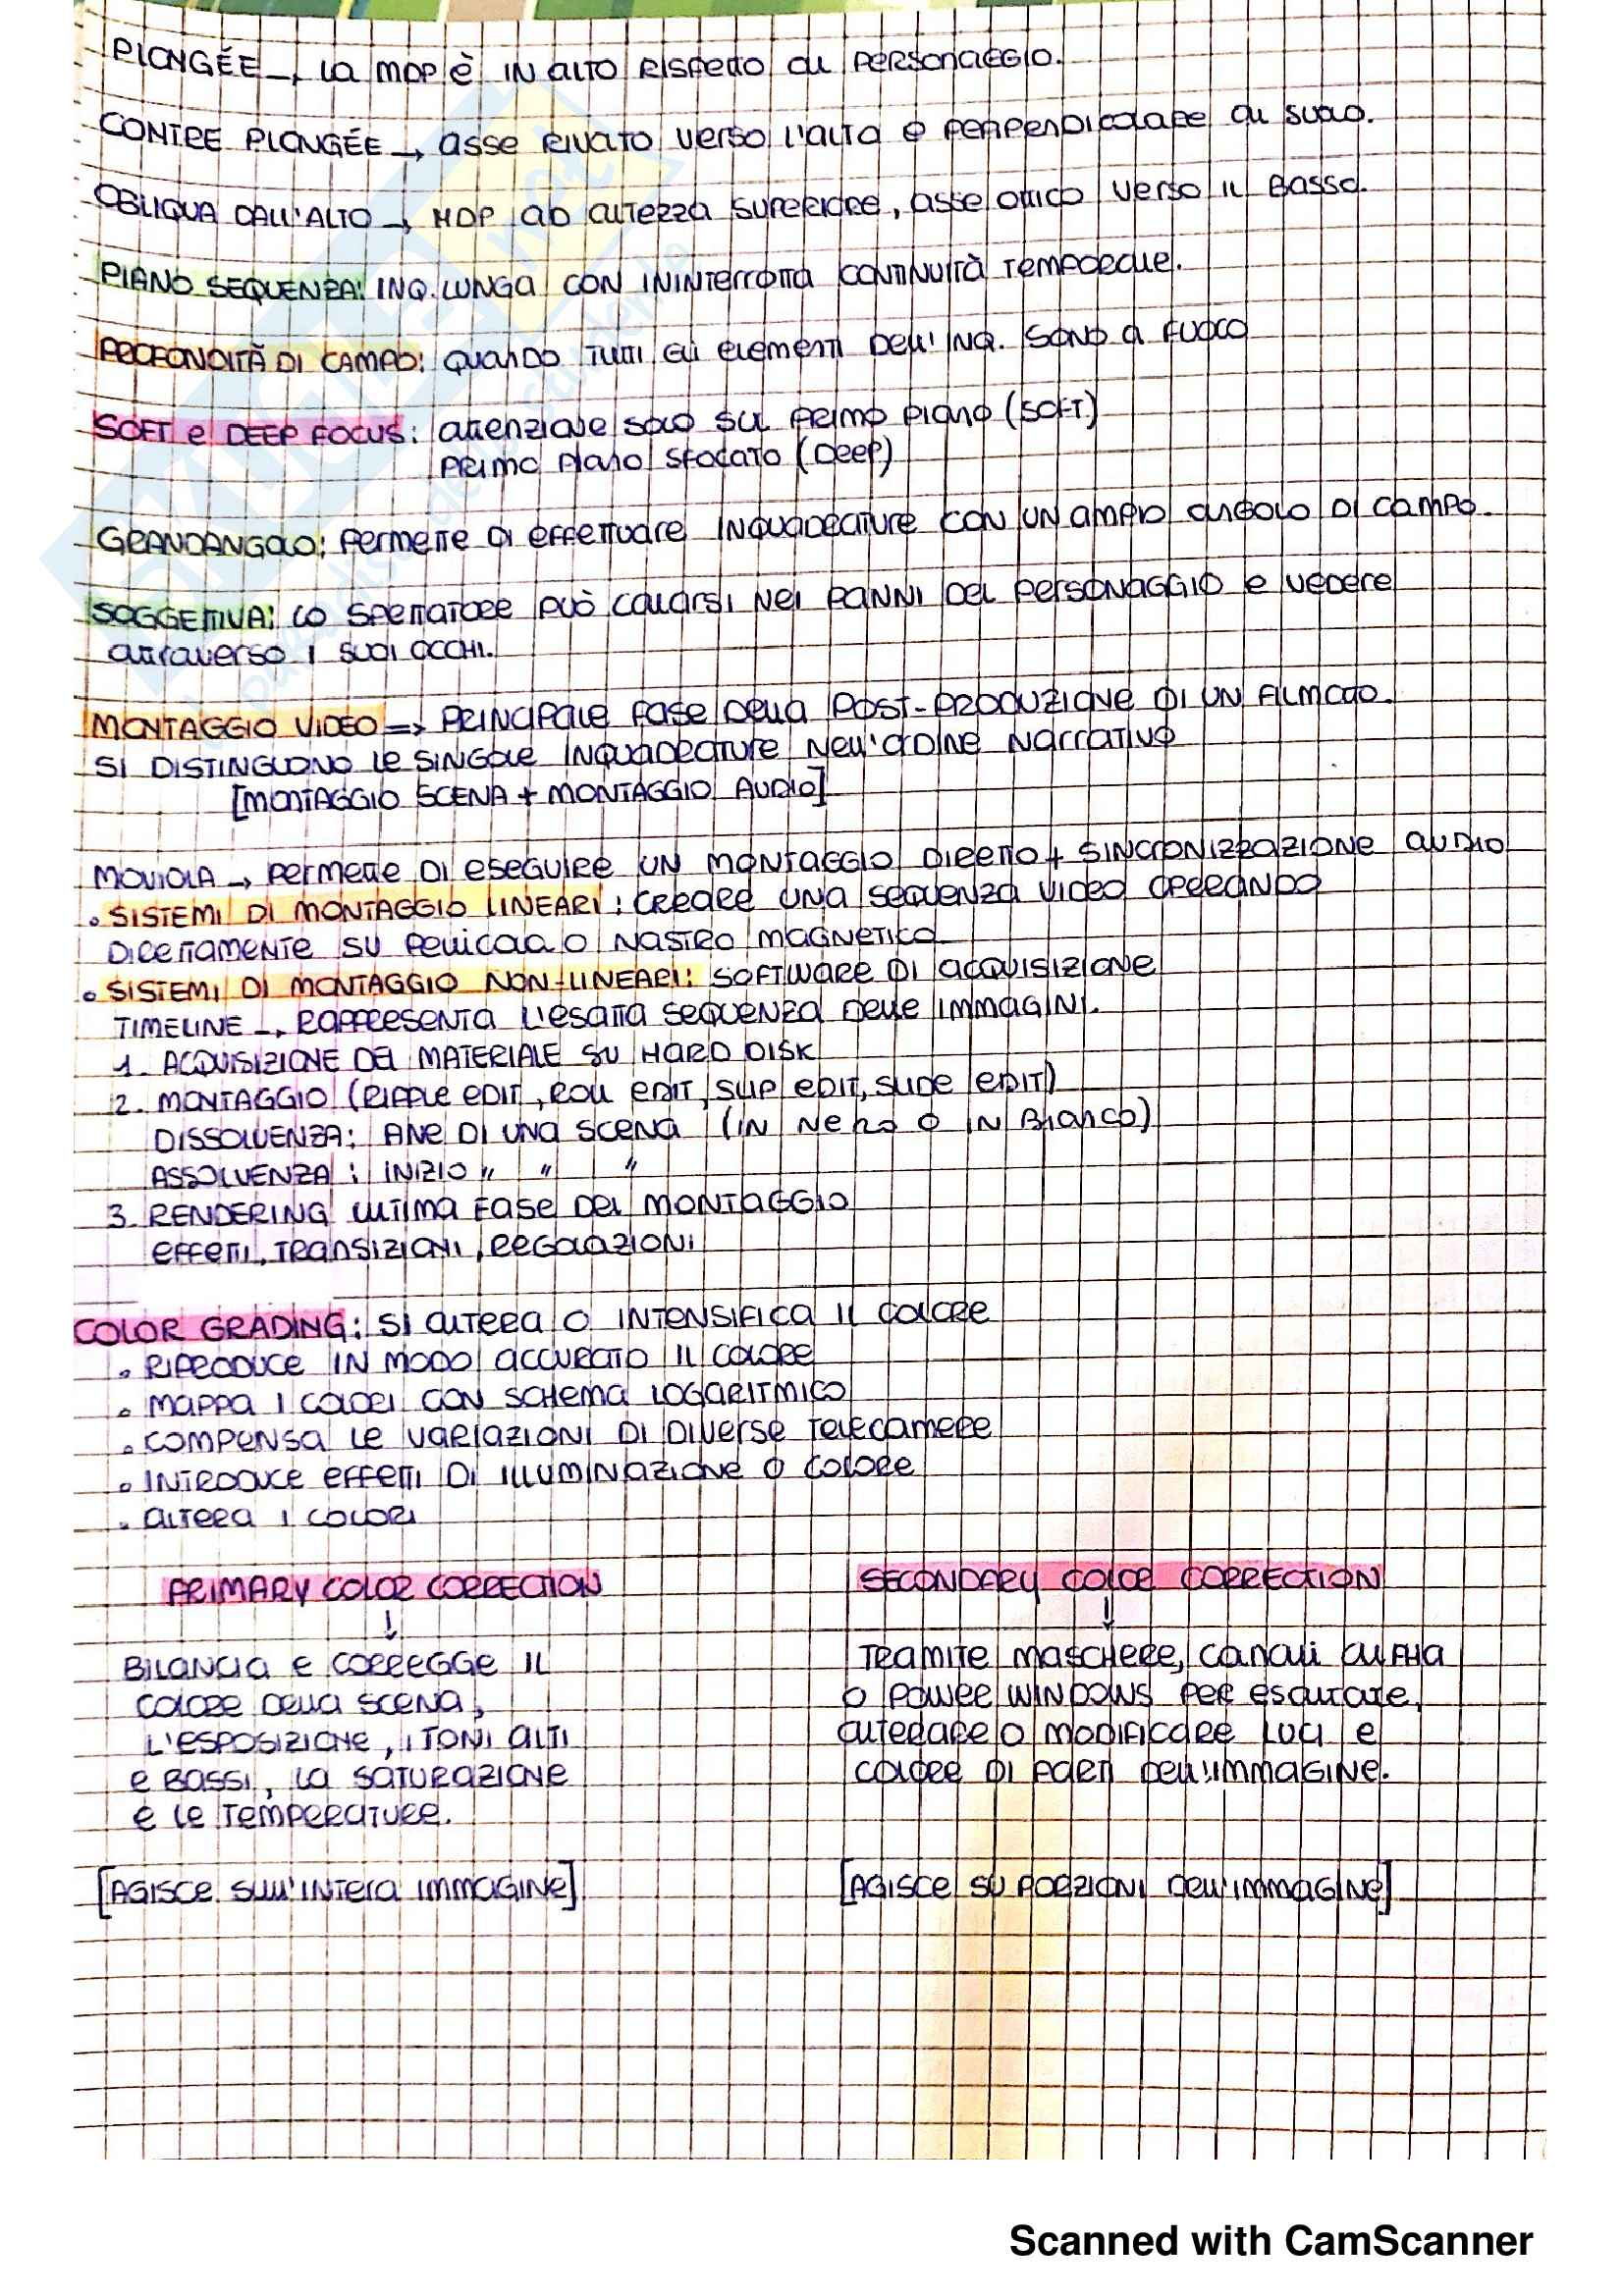 PLONGÉE → la MDP È IN ALTO RISPETTO al PERSONAGGIO.
CONTRE PLONGÉE → asse RIVOLTO verso l'alto e PERPENDICOLARE al suolo.
OBLIQUA DALL'ALTO → MDP ad altezza superiore, asse ottico verso il Basso.
PIANO SEQUENZA: INQ. LUNGA CON ININTERROTTA CONTINUITÀ TEMPORALE.
PROFONDITÀ DI CAMPO: QUANDO TUTTI gli elementi Dell' INQ. SONO a FUOCO
SOFT e DEEP FOCUS: attenzione solo sul PRIMO PIANO (SOFT)
PRIMO PIANO SFOCATO (Deep)
GRANDANGOLO: Permette di effettuare INQUADRATURE CON UN AMPIO angolo DI CAMPO.
SOGGETTIVA: LO SPETTATORE PUÒ calarsi NEI PANNI DEL PERSONAGGIO e vedere
attraverso I SUOI OCCHI.
MONTAGGIO VIDEO => PRINCIPALE FASE Della POST-PRODUZIONE DI UN FILMATO.
SI DISTINGUONO le SINGOLE INQUADRATURE Nell'ordine Narrativo
[MONTAGGIO SCENA + MONTAGGIO AUDIO]
MOVIOLA → PERMETTE DI ESEGUIRE UN MONTAGGIO DIRETTO + SINCRONIZZAZIONE AUDIO
• SISTEMI DI MONTAGGIO LINEARI: CREARE UNA SEQUENZA VIDEO OPERANDO
DIRETTAMENTE SU Pellicola O NASTRO MAGNETICO
• SISTEMI DI MONTAGGIO NON-LINEARI: SOFTWARE DI ACQUISIZIONE
TIMELINE → RAPPRESENTA l'esatta SEQUENZA Delle IMMAGINI.
1. ACQUISIZIONE DEL MATERIALE SU HARD DISK
2. MONTAGGIO (RIPPLE EDIT, ROLL EDIT, SLIP EDIT, SLIDE EDIT)
DISSOLVENZA: FINE DI UNA SCENA (IN NERO O IN BIANCO)
ASSOLVENZA: INIZIO " " "
3. RENDERING ULTIMA FASE DEL MONTAGGIO
EFFETTI, TRANSIZIONI, REGOLAZIONI
COLOR GRADING: SI ALTERA O INTENSIFICA IL COLORE
• RIPRODUCE IN MODO ACCURATO IL COLORE
• MAPPA I COLORI CON SCHEMA LOGARITMICO
• COMPENSA LE VARIAZIONI DI DIVERSE TELECAMERE
• INTRODUCE EFFETTI DI ILLUMINAZIONE O COLORE
• ALTERA I COLORI
PRIMARY COLOR CORRECTION
↓
BILANCIA E CORREGGE IL
COLORE Della SCENA,
L'ESPOSIZIONE, I TONI ALTI
e BASSI, LA SATURAZIONE
E LE TEMPERATURE.
[AGISCE SULL'INTERA IMMAGINE]
SECONDARY COLOR CORRECTION
↓
TRAMITE MASCHERE, CANALI ALPHA
O POWER WINDOWS PER ESALTARE,
ALTERARE O MODIFICARE LUCI E
COLORE DI PARTI DELL'IMMAGINE.
[AGISCE SU PORZIONI DELL'IMMAGINE]
Scanned with CamScanner